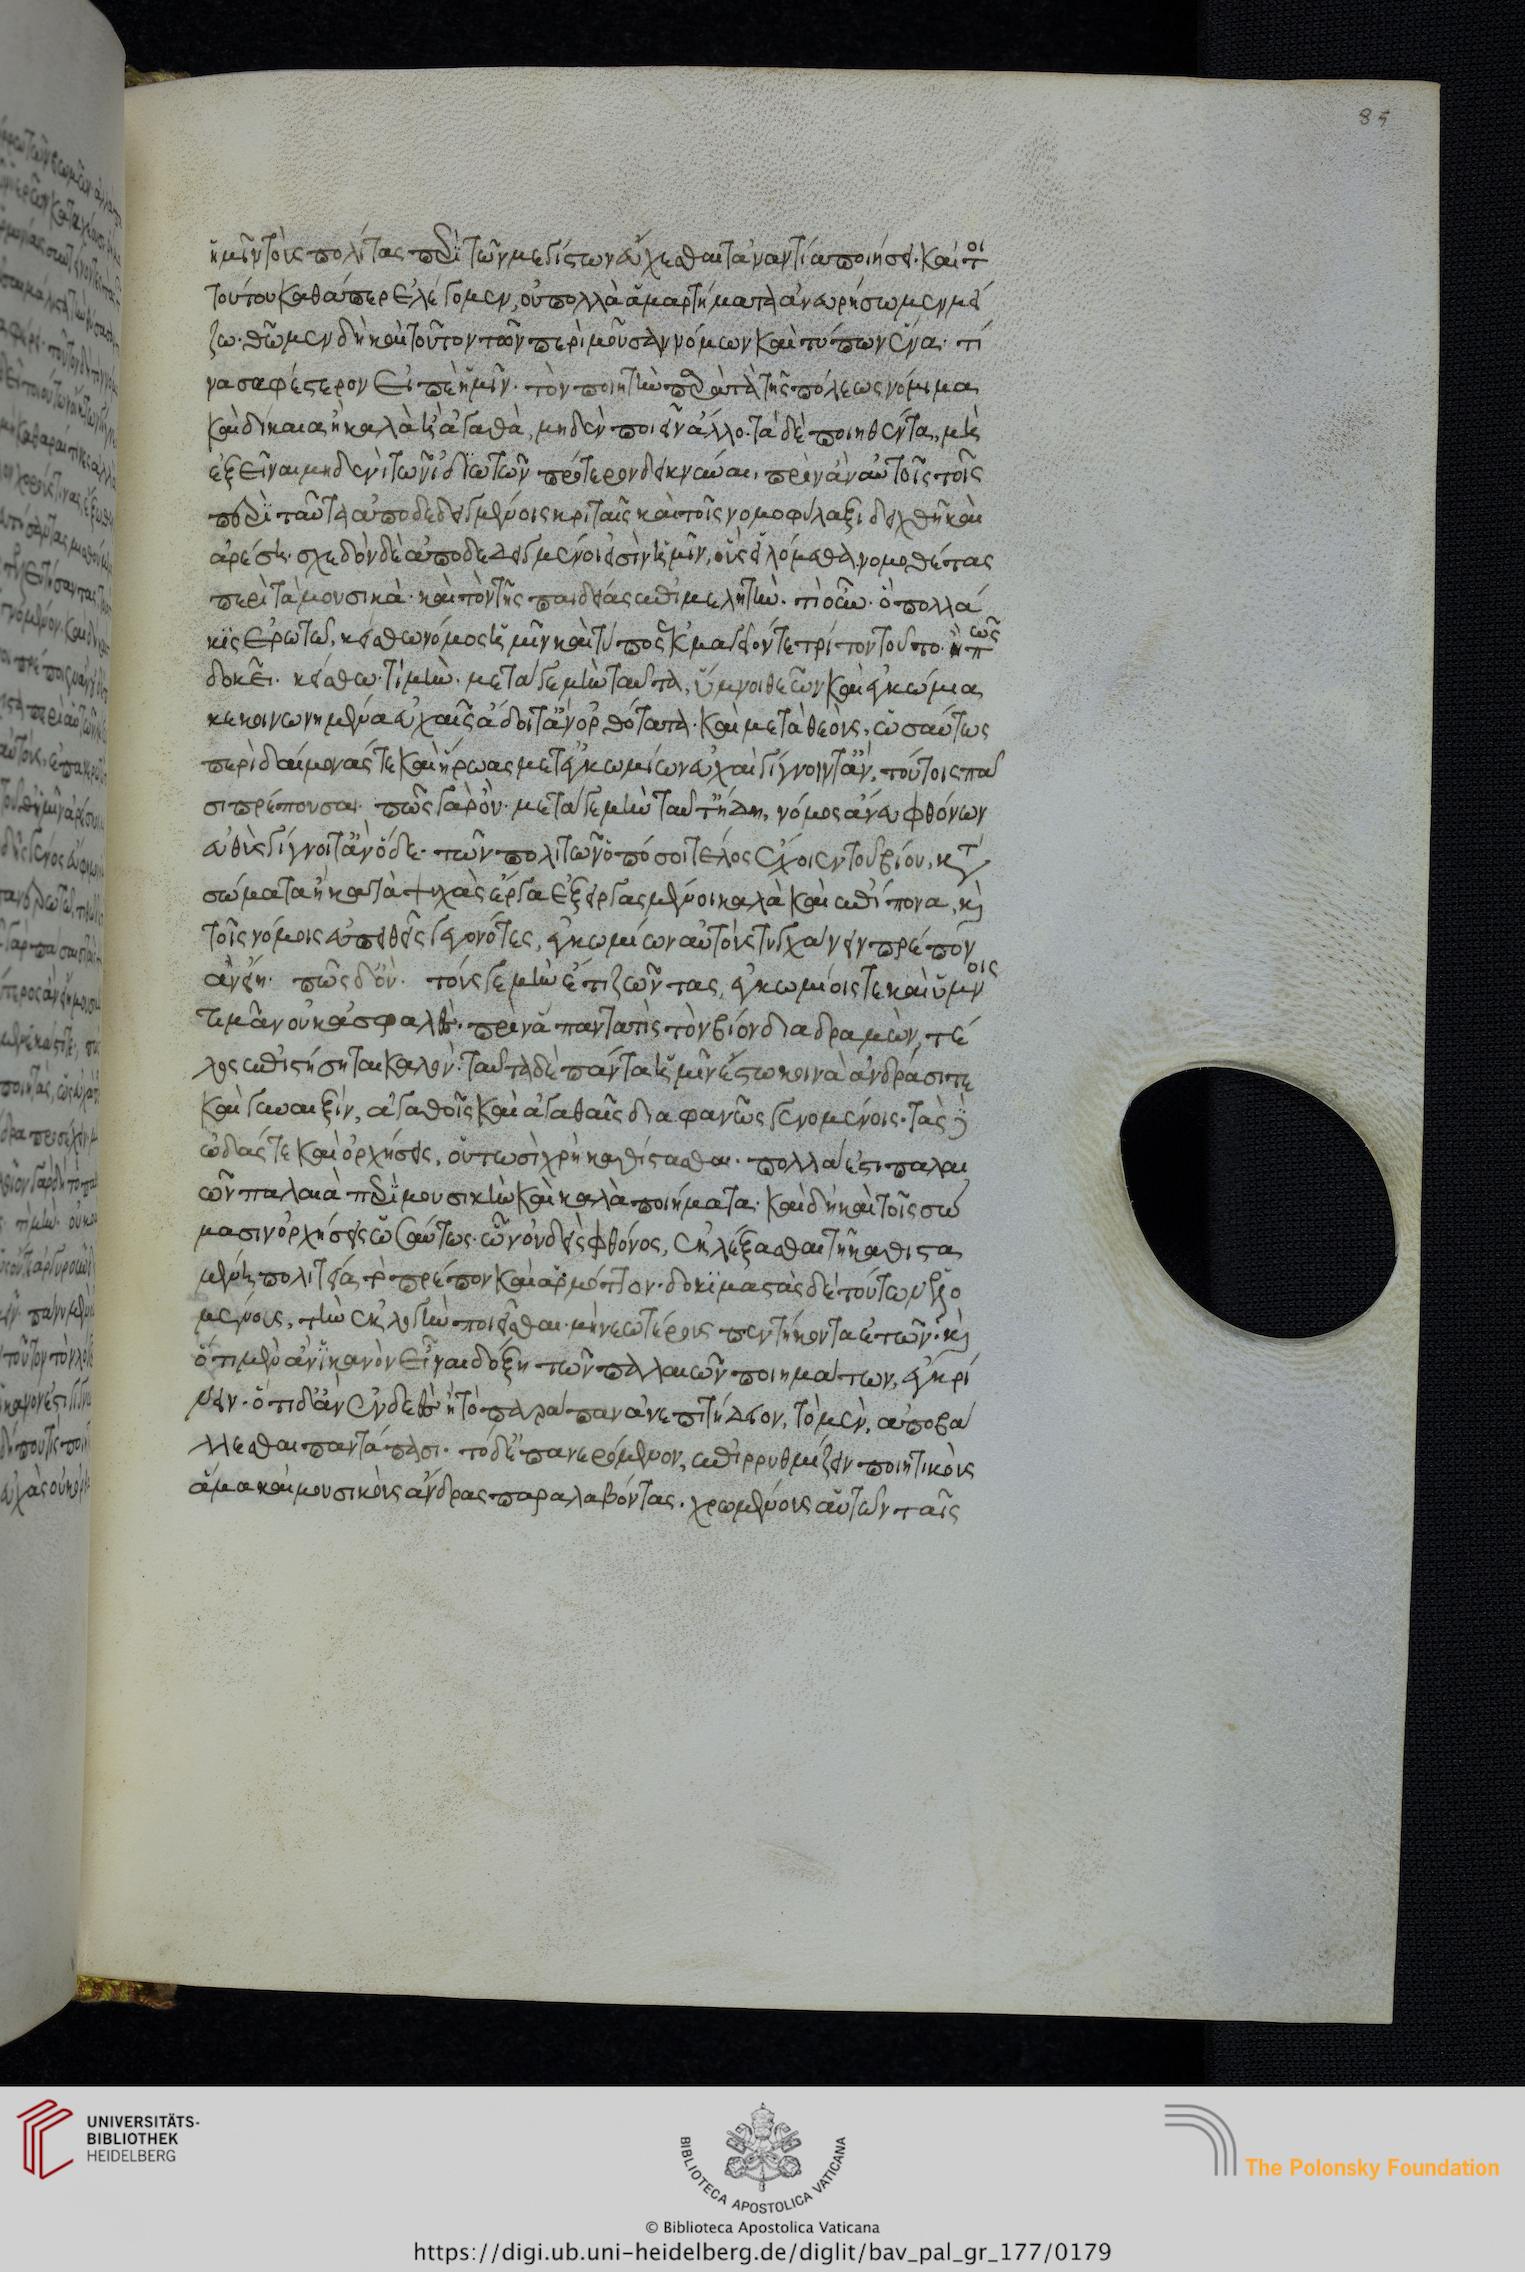 85
ἡμῖν τοὺς πολίτας περὶ τῶν μεγίστων εὔχεσθαι τἀναντία ποιήσει. καί τοι
τούτου καθάπερ ἐλέγομεν, οὐ πολλὰ ἁμαρτήματα ἀνευρήσωμεν μεί
ζω. θῶμεν δὴ καὶ τοῦτον τῶν περὶ μοῦσαν νόμων καὶ τύπων ἕνα. τί
να σαφέστερον εἰπὲ ἡμῖν. τὸν ποιητὴν παρὰ τὰ τῆς πόλεως νόμιμα
καὶ δίκαια ἢ καλὰ ἢ ἀγαθὰ, μηδὲν ποιεῖν ἄλλο. τὰ δὲ ποιηθέντα, μὴ
ἐξεῖναι μηδενὶ τῶν ἰδιωτῶν πρότερον δεικνύναι, πρὶν ἂν αὐτοῖς τοῖς
περὶ ταῦτα ἀποδεδειγμένοις κριταῖς καὶ τοῖς νομοφύλαξι δειχθῇ καὶ
ἀρέσῃ. σχεδὸν δὲ ἀποδεδειγμένοι εἰσὶν ἡμῖν, οὓς εἱλόμεθα νομοθέτας
περὶ τὰ μουσικὰ. καὶ τὸν τῆς παιδείας ἐπιμελητὴν. τί οὖν. ὃ πολλά
κις ἐρωτῶ, κείσθω νόμος ἡμῖν καὶ τύπος ἐκμαγεῖόν τε τρίτον τοῦτο. ἢ πῶς
δοκεῖ. κείσθω. τί μήν. μετά γε μὴν ταῦτα, ὕμνοι θεῶν καὶ ἐγκώμια
κεκοινωνημένα εὐχαῖς ᾄδοιτ' ἂν ὀρθότατα. καὶ μετὰ θεοὺς, ὡσαύτως
περὶ δαίμονάς τε καὶ ἥρωας μετ' ἐγκωμίων εὐχαὶ γίγνοιντ' ἄν, τούτοις πᾶ
σι πρέπουσαι. πῶς γὰρ οὔ. μετά γε μὴν ταῦτ' ἤδη, νόμος ἄνευ φθόνων
εὐθὺς γίγνοιτ' ἂν ὅδε. τῶν πολιτῶν ὁπόσοι τέλος ἔχοιεν τοῦ βίου, κατὰ
σώματα ἢ κατὰ ψυχὰς ἔργα ἐξειργασμένοι καλὰ καὶ ἐπίπονα, καὶ
τοῖς νόμοις εὐπειθεῖς γεγονότες, ἐγκωμίων αὐτοὺς τυγχάνειν πρέπον
ἂν εἴη. πῶς δ' οὔ. τούς γε μὴν ἔτι ζῶντας, ἐγκωμίοις τε καὶ ὕμνοις
τιμᾶν οὐκ ἀσφαλές. πρὶν ἂν πάντα τις τὸν βίον διαδραμὼν, τέ
λος ἐπιστήσηται καλὸν. ταῦτα δὲ πάντα ἡμῖν ἔστω κοινὰ ἀνδράσι τε
καὶ γυναιξίν, ἀγαθοῖς καὶ ἀγαθαῖς διαφανῶς γενομένοις. τὰς δὲ
ᾠδάς τε καὶ ὀρχήσεις, οὑτωσὶ χρὴ καθίστασθαι. πολλά ἐστι παλαι
ῶν παλαιὰ περὶ μουσικὴν καὶ καλὰ ποιήματα. καὶ δὴ καὶ τοῖς σώ
μασιν ὀρχήσεις ὡσαύτως. ὧν οὐδεὶς φθόνος, ἐκλέξασθαι τῇ καθιστα
μένῃ πολιτείᾳ τὸ πρέπον καὶ ἁρμόττον. δοκιμαστὰς δὲ τούτων ἑλο
μένους, τὴν ἐκλογὴν ποιεῖσθαι. μὴ νεωτέρους πεντήκοντα ἐτῶν. καὶ
ὅ τι μὲν ἂν ἱκανὸν εἶναι δόξῃ τῶν παλαιῶν ποιημάτων, ἐγκρί
νειν. ὅ τι δ' ἂν ἐνδεὲς ἢ τὸ παράπαν ἀνεπιτήδειον, τὸ μὲν, ἀποβά
λλεσθαι παντάπασι. τὸ δ' ἐπανερόμενον, ἐπιρρυθμίζειν ποιητικοὺς
ἅμα καὶ μουσικοὺς ἄνδρας παραλαβόντας. χρωμένους αὐτῶν ταῖς
UNIVERSITÄTS-
BIBLIOTHEK
HEIDELBERG
BIBLIOTECA APOSTOLICA VATICANA
The Polonsky Foundation
© Biblioteca Apostolica Vaticana
https://digi.ub.uni-heidelberg.de/diglit/bav_pal_gr_177/0179